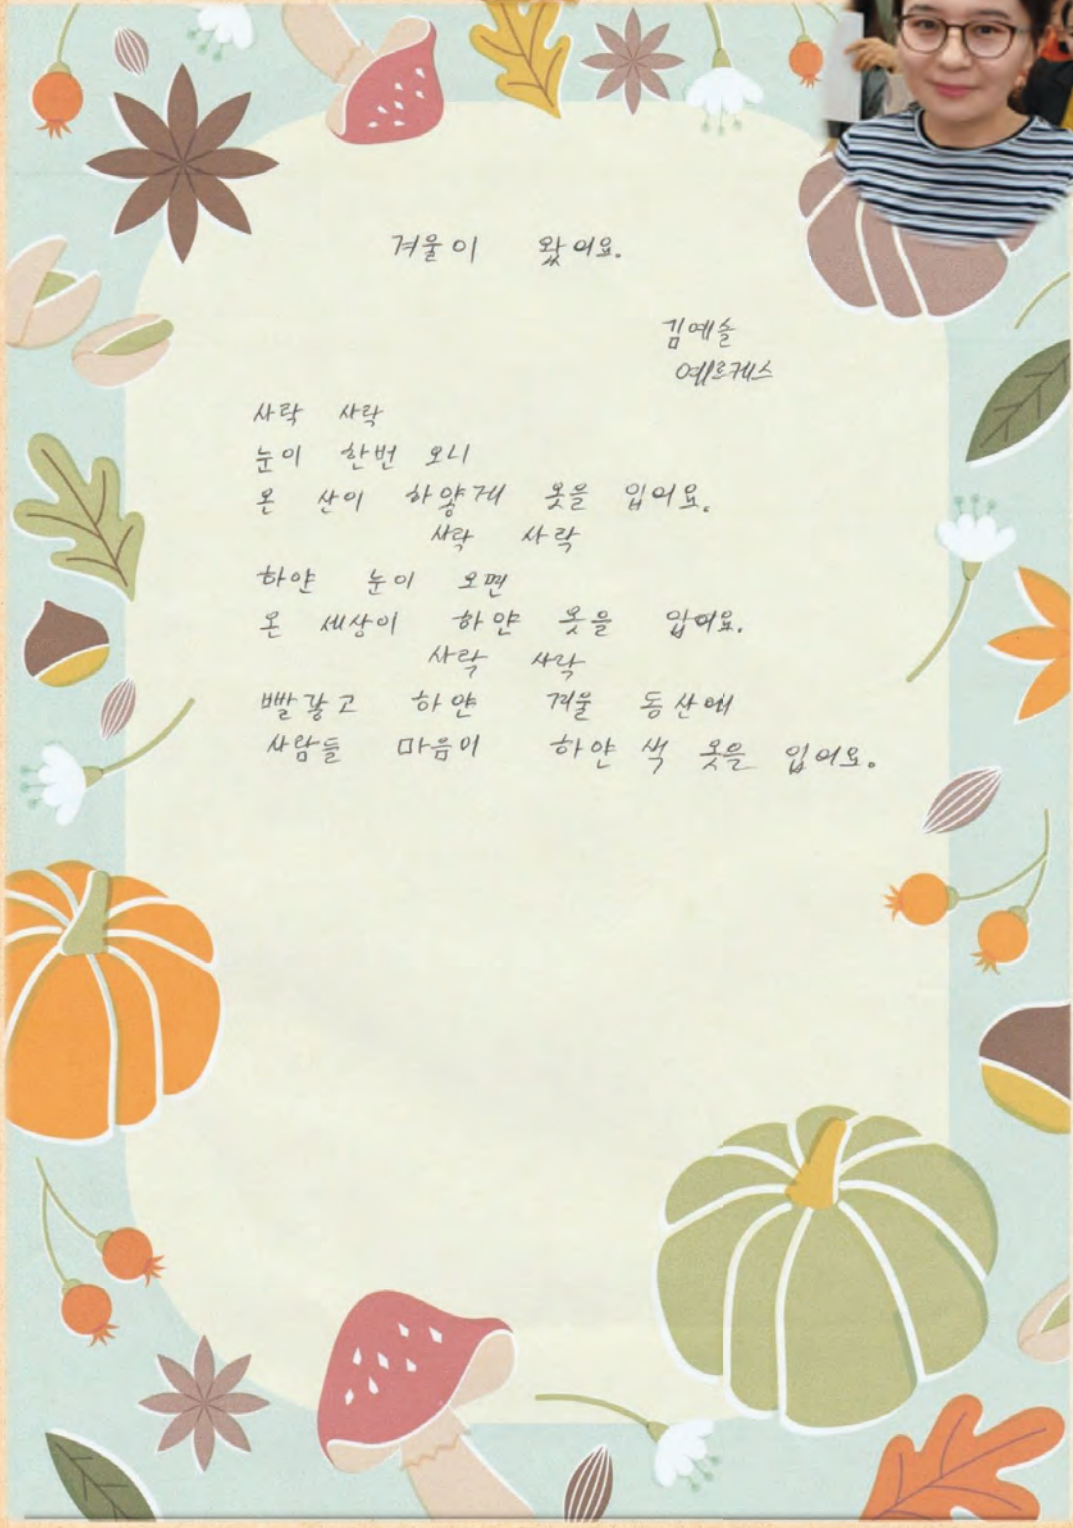 겨울이 왔어요.
김예슬
예르케스
사락 사락
눈이 한번 오니
온 산이 하얗게 옷을 입어요.
사락 사락
하얀 눈이 오면
온 세상이 하얀 옷을 입어요.
사락 사락
빨갛고 하얀 겨울 동산에
사람들 마음이 하얀 색 옷을 입어요.